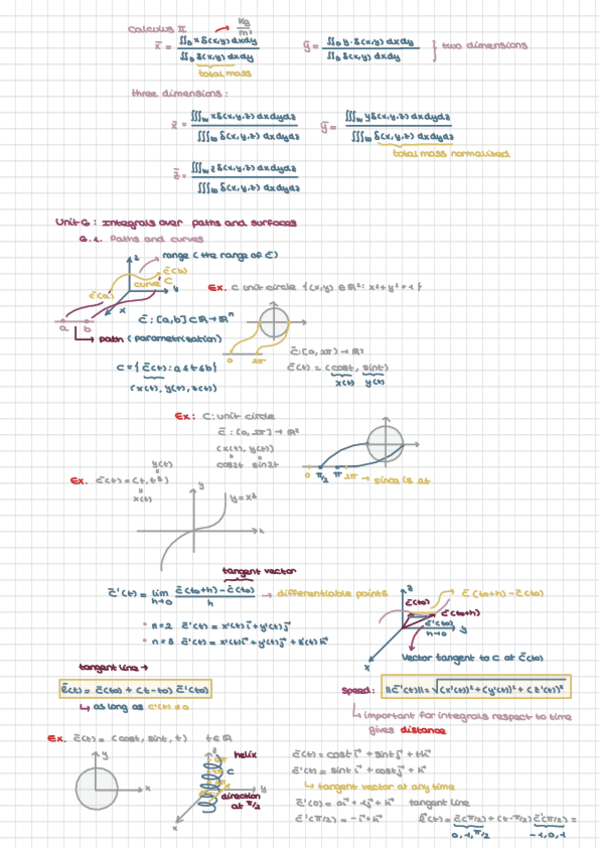 Calculus II
kg/m²
x̄ = ∬_D x δ(x,y) dxdy / ∬_D δ(x,y) dxdy   ȳ = ∬_D y·δ(x,y) dxdy / ∬_D δ(x,y) dxdy } two dimensions
total mass
three dimensions:
x̄ = ∭_W xδ(x,y,z) dxdydz / ∭_W δ(x,y,z) dxdydz   ȳ = ∭_W yδ(x,y,z) dxdydz / ∭_W δ(x,y,z) dxdydz
total mass normalized
z̄ = ∭_W z δ(x,y,z) dxdydz / ∭_W δ(x,y,z) dxdydz
Unit 6: Integrals over paths and surfaces
6.1. Paths and curves
z range (the range of c̄)
c̄(a) c̄(b) curve C y x
a b
path (parametrisation)
c̄: [a,b]⊂ℝ→ℝⁿ
C={c̄(t): a≤t≤b}
(x(t), y(t), z(t))
Ex. C unit circle {(x,y) ∈ ℝ²: x²+y²=1}
0 2π
c̄: [0, 2π] → ℝ²
c̄(t) = (cost, sint)
x(t) y(t)
Ex: C: unit circle
c̄: [0, 2π] → ℝ²
(x(t), y(t))
cos2t sin2t
0 π/2 π 2π → since is 2t
Ex. c̄(t)=(t, t³)
y(t)
x(t)
y y=x³ x
tangent vector
c̄'(t) = lim h→0 c̄(t0+h)-c̄(t0) / h → differentiable points
n=2 c̄'(t) = x'(t)i⃗ + y'(t)j⃗
n=3 c̄'(t) = x'(t)i⃗ + y'(t)j⃗ + z'(t)k⃗
z c̄(t0) c̄(t0+h) - c̄(t0)
c̄(t0+h)
c̄'(t0) y
h→0
x Vector tangent to C at c̄(t0)
tangent line →
l̄(t) = c̄(t0) + (t-t0) c̄'(t0)
↳ as long as c'(t) ≠ 0
Speed: ||c̄'(t)|| = √(x'(t))²+(y'(t))²+(z'(t))²
↳ important for integrals respect to time
gives distance
Ex. c̄(t) = (cost, sint, t) t∈ℝ
y x
z helix
C
direction at π/2
y
x
c̄(t) = cost i⃗ + sint j⃗ + t k⃗
c̄'(t) = sint i⃗ + cost j⃗ + k⃗
↳ tangent vector at any time
c̄'(0) = 0i⃗ + 1j⃗ + k⃗ tangent line
c̄'(π/2) = -i⃗ + k⃗ l̄(t) = c̄(π/2) + (t-π/2) c̄'(π/2) =
0,1,π/2 -1,0,1